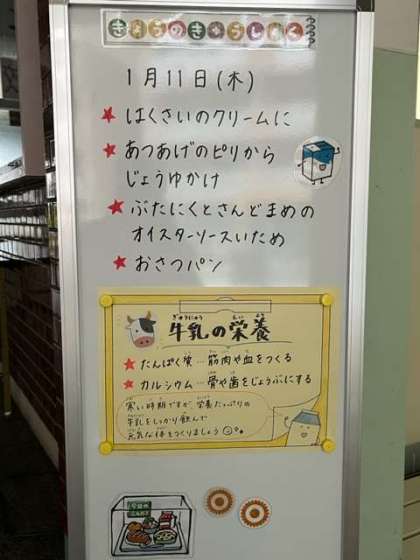 きょうのきゅうしょく
1月11日(木)
★はくさいのクリームに
★あつあげのピリから
じょうゆかけ
★ぶたにくとさんどまめの
オイスターソースいため
★おさつパン
ぎゅうにゅう えいよう
牛乳の栄養
★たんぱく質…筋肉や血をつくる
★カルシウム…骨や歯をじょうぶにする
寒い時期ですが栄養たっぷりの
牛乳をしっかり飲んで
元気な体をつくりましょう